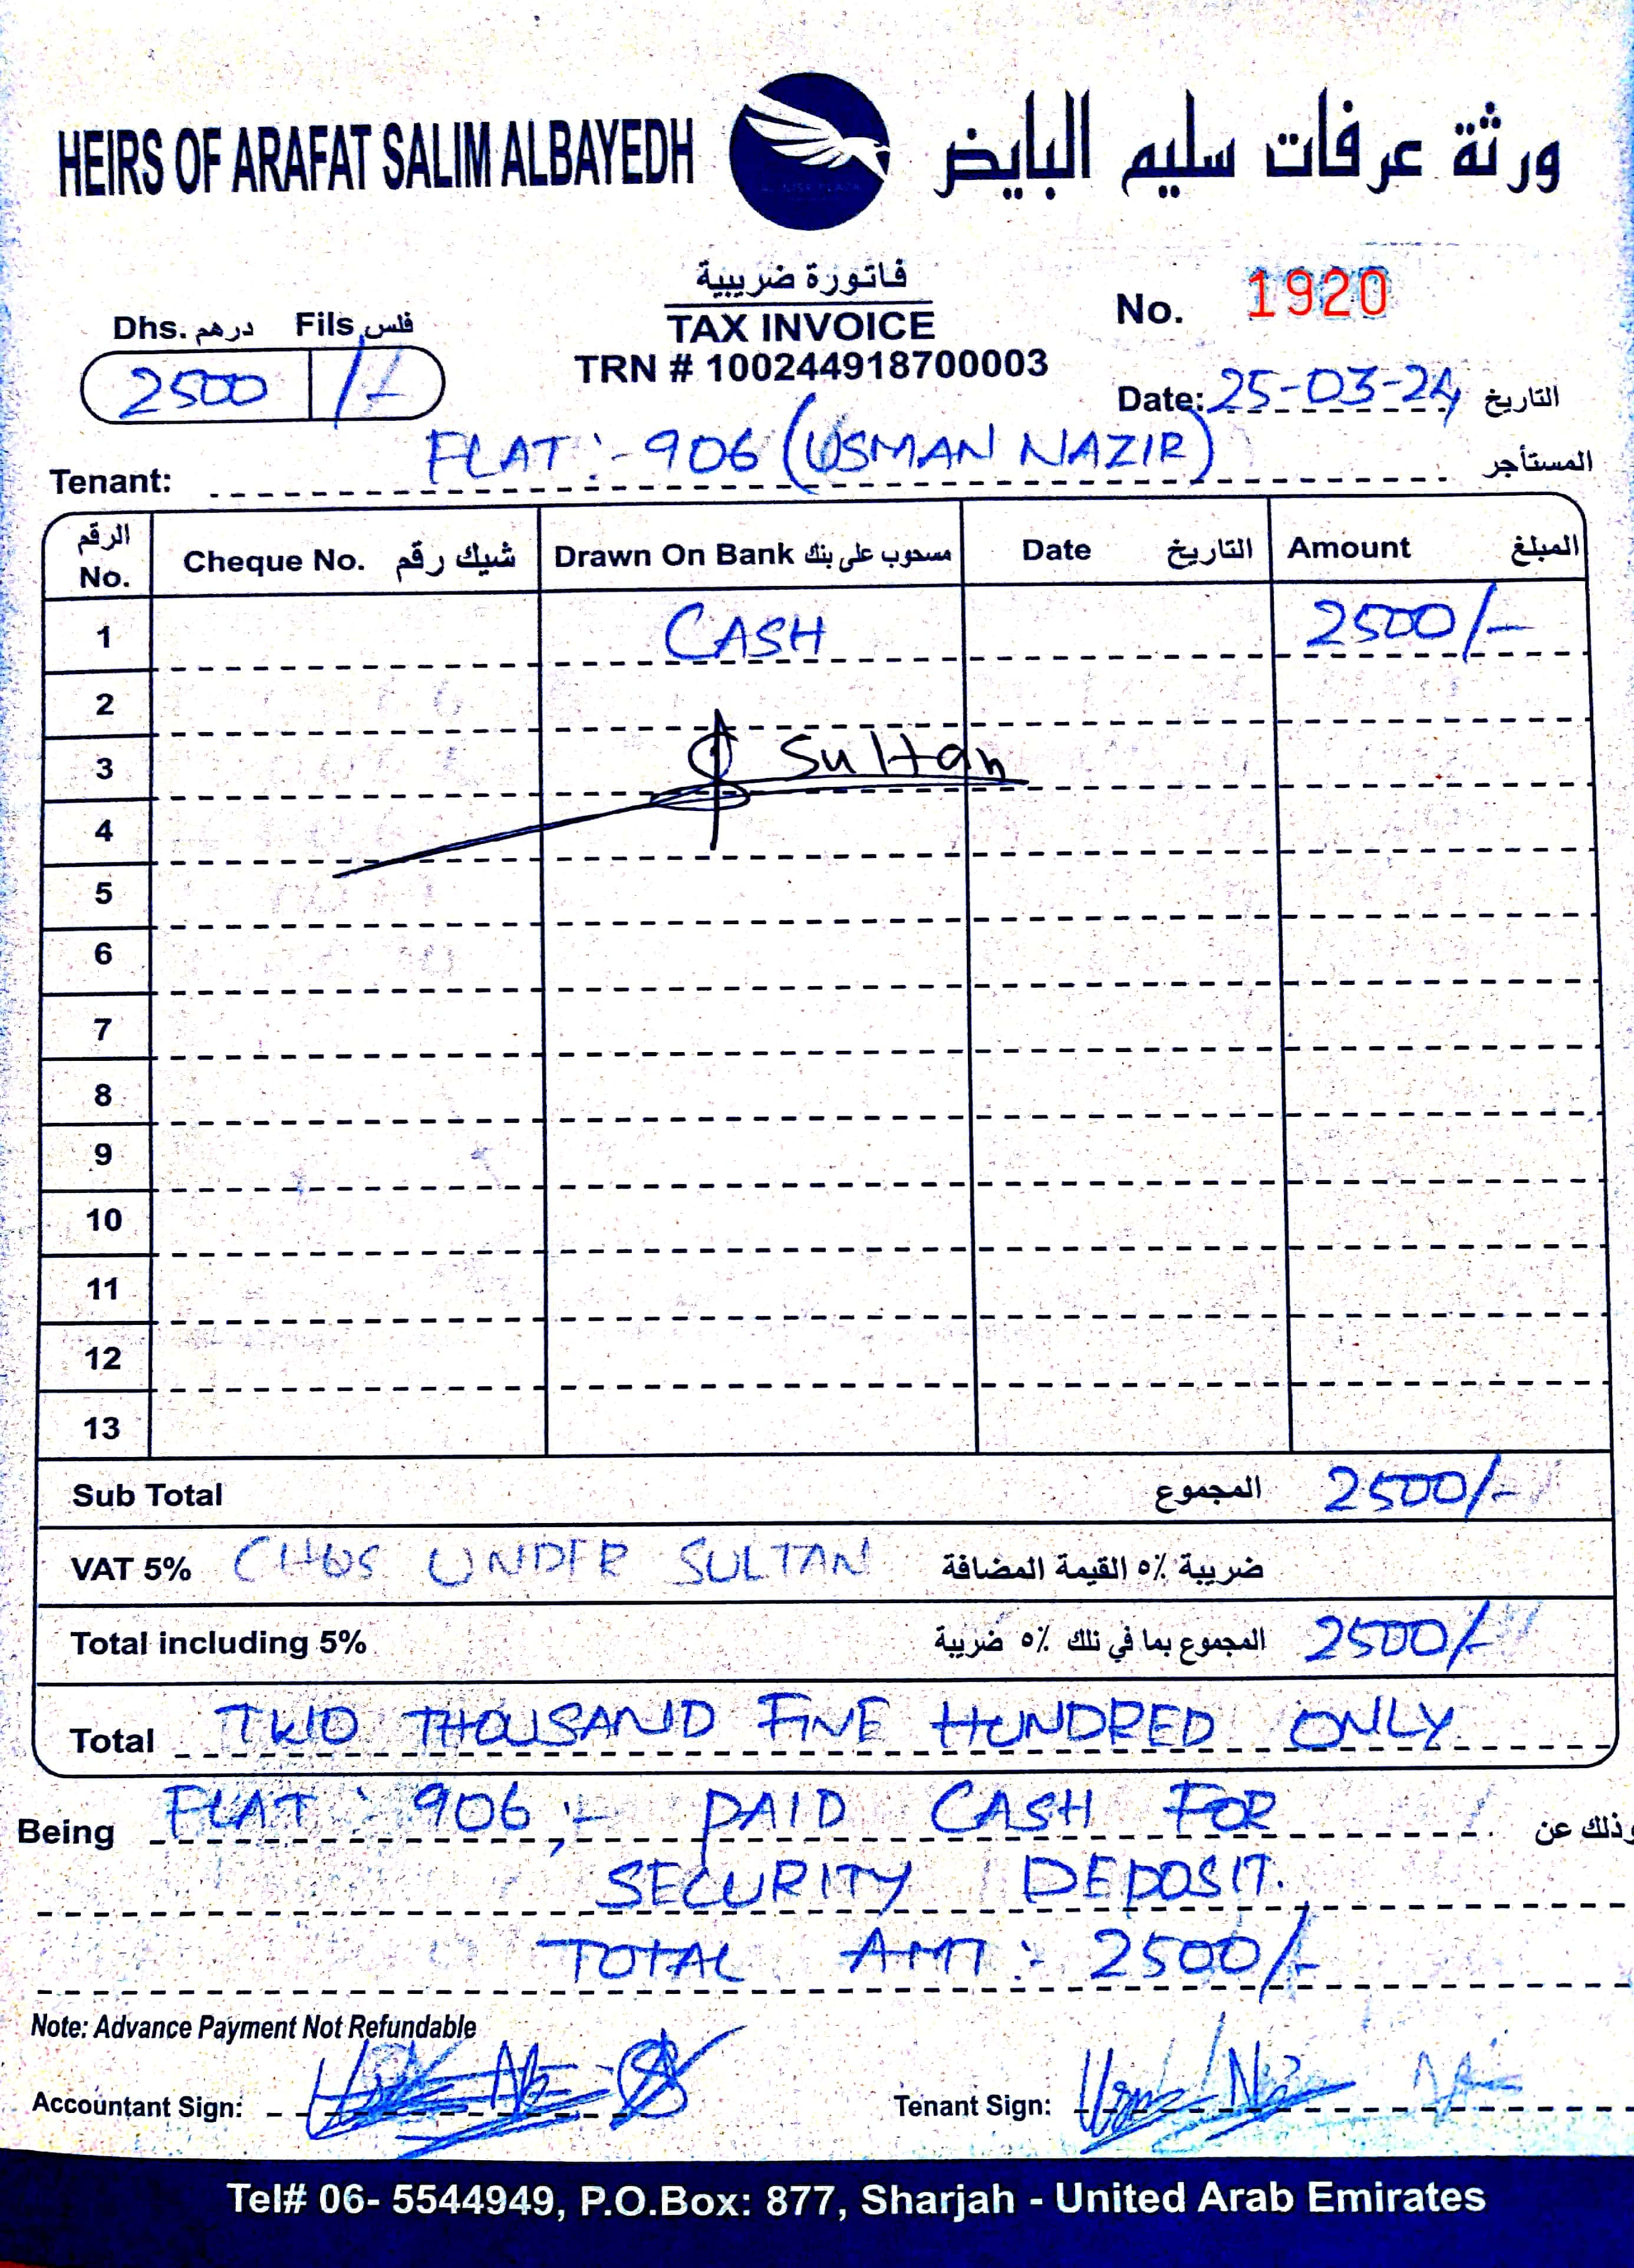 HEIRS OF ARAFAT SALIM ALBAYEDH
ورثة عرفات سليم البايض
فاتورة ضريبية
TAX INVOICE
TRN # 100244918700003
No. 1920
Dhs. درهم Fils فلس
2500 /-
Date: 25-03-24 التاريخ
Tenant: FLAT :- 906 (USMAN NAZIR) المستأجر
الرقم No. Cheque No. شيك رقم Drawn On Bank مسحوب على بنك Date التاريخ Amount المبلغ
1 CASH 2500/-
2
3 Sultan
4
5
6
7
8
9
10
11
12
13
Sub Total المجموع 2500/-
VAT 5% UNDER SULTAN ضريبة ٥٪ القيمة المضافة
Total including 5% المجموع بما في ذلك ٥٪ ضريبة 2500/-
Total TWO THOUSAND FIVE HUNDRED ONLY
Being FLAT : 906 :- PAID CASH FOR وذلك عن
SECURITY DEPOSIT.
TOTAL AMT : 2500/-
Note: Advance Payment Not Refundable
Accountant Sign:
Tenant Sign:
Tel# 06- 5544949, P.O.Box: 877, Sharjah - United Arab Emirates